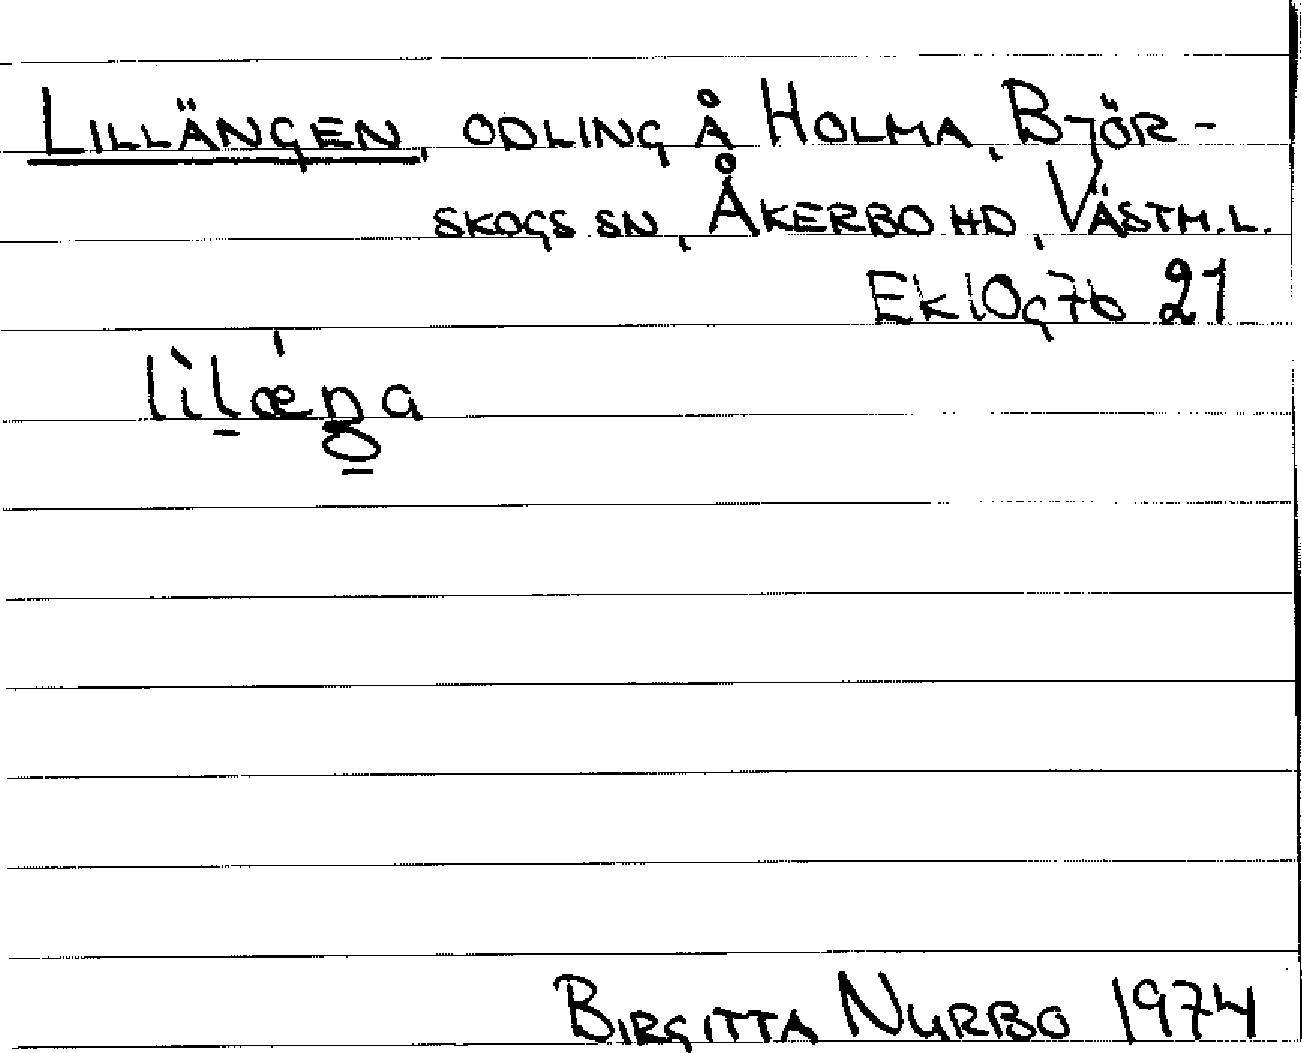 LILLÄNGEN, ODLING Å HOLMA, BJÖR-
SKOGS SN, ÅKERBO HD, VÄSTM.L.
Ek 10g7b 21
lìl̠ǽŋ̠a
BIRGITTA NURBO 1974